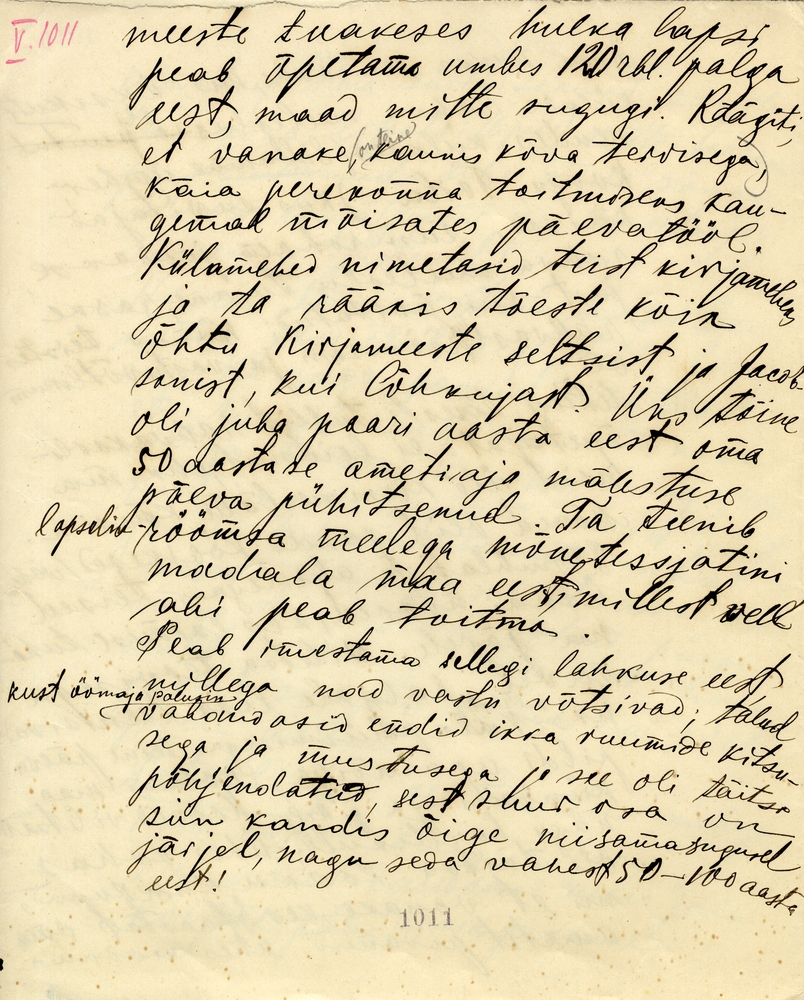 V. 1011
meeste tuakeses hulka lapsi
peab õpetama umbes 120 rbl. palga
eest, maad mitte sugugi. Räägiti,
et vanake, kaunis kõva tervisega,
käia perekonna toitmiseks kau-
gemal mõisates päevatööl.
Külamehed nimetasid teist kirjameheks
ja ta rääkis tõeste kõik
õhtu Kirjameeste seltsist ja Jacob-
sonist, kui lõhkujast. Üks tõine
oli juba paari aasta eest oma
50 aastase ametiaja mälestuse
päeva pühitsenud. Ta teenib
rõõmsa meelega mõnetessjatini
madala maa eest, millest veel
abi peab toitma.
Peab imestama sellegi lahkuse eest,
millega nad vastu võtsivad; talud
kust öömaja palusin
vabandasid endid ikka ruumide kitsu-
sega ja mustusega ja see oli täitsa
põhjendatud, sest suur osa on
siin kandis õige niisamasugusel
järjel, nagu seda vahest 50-100 aasta
eest!
1011